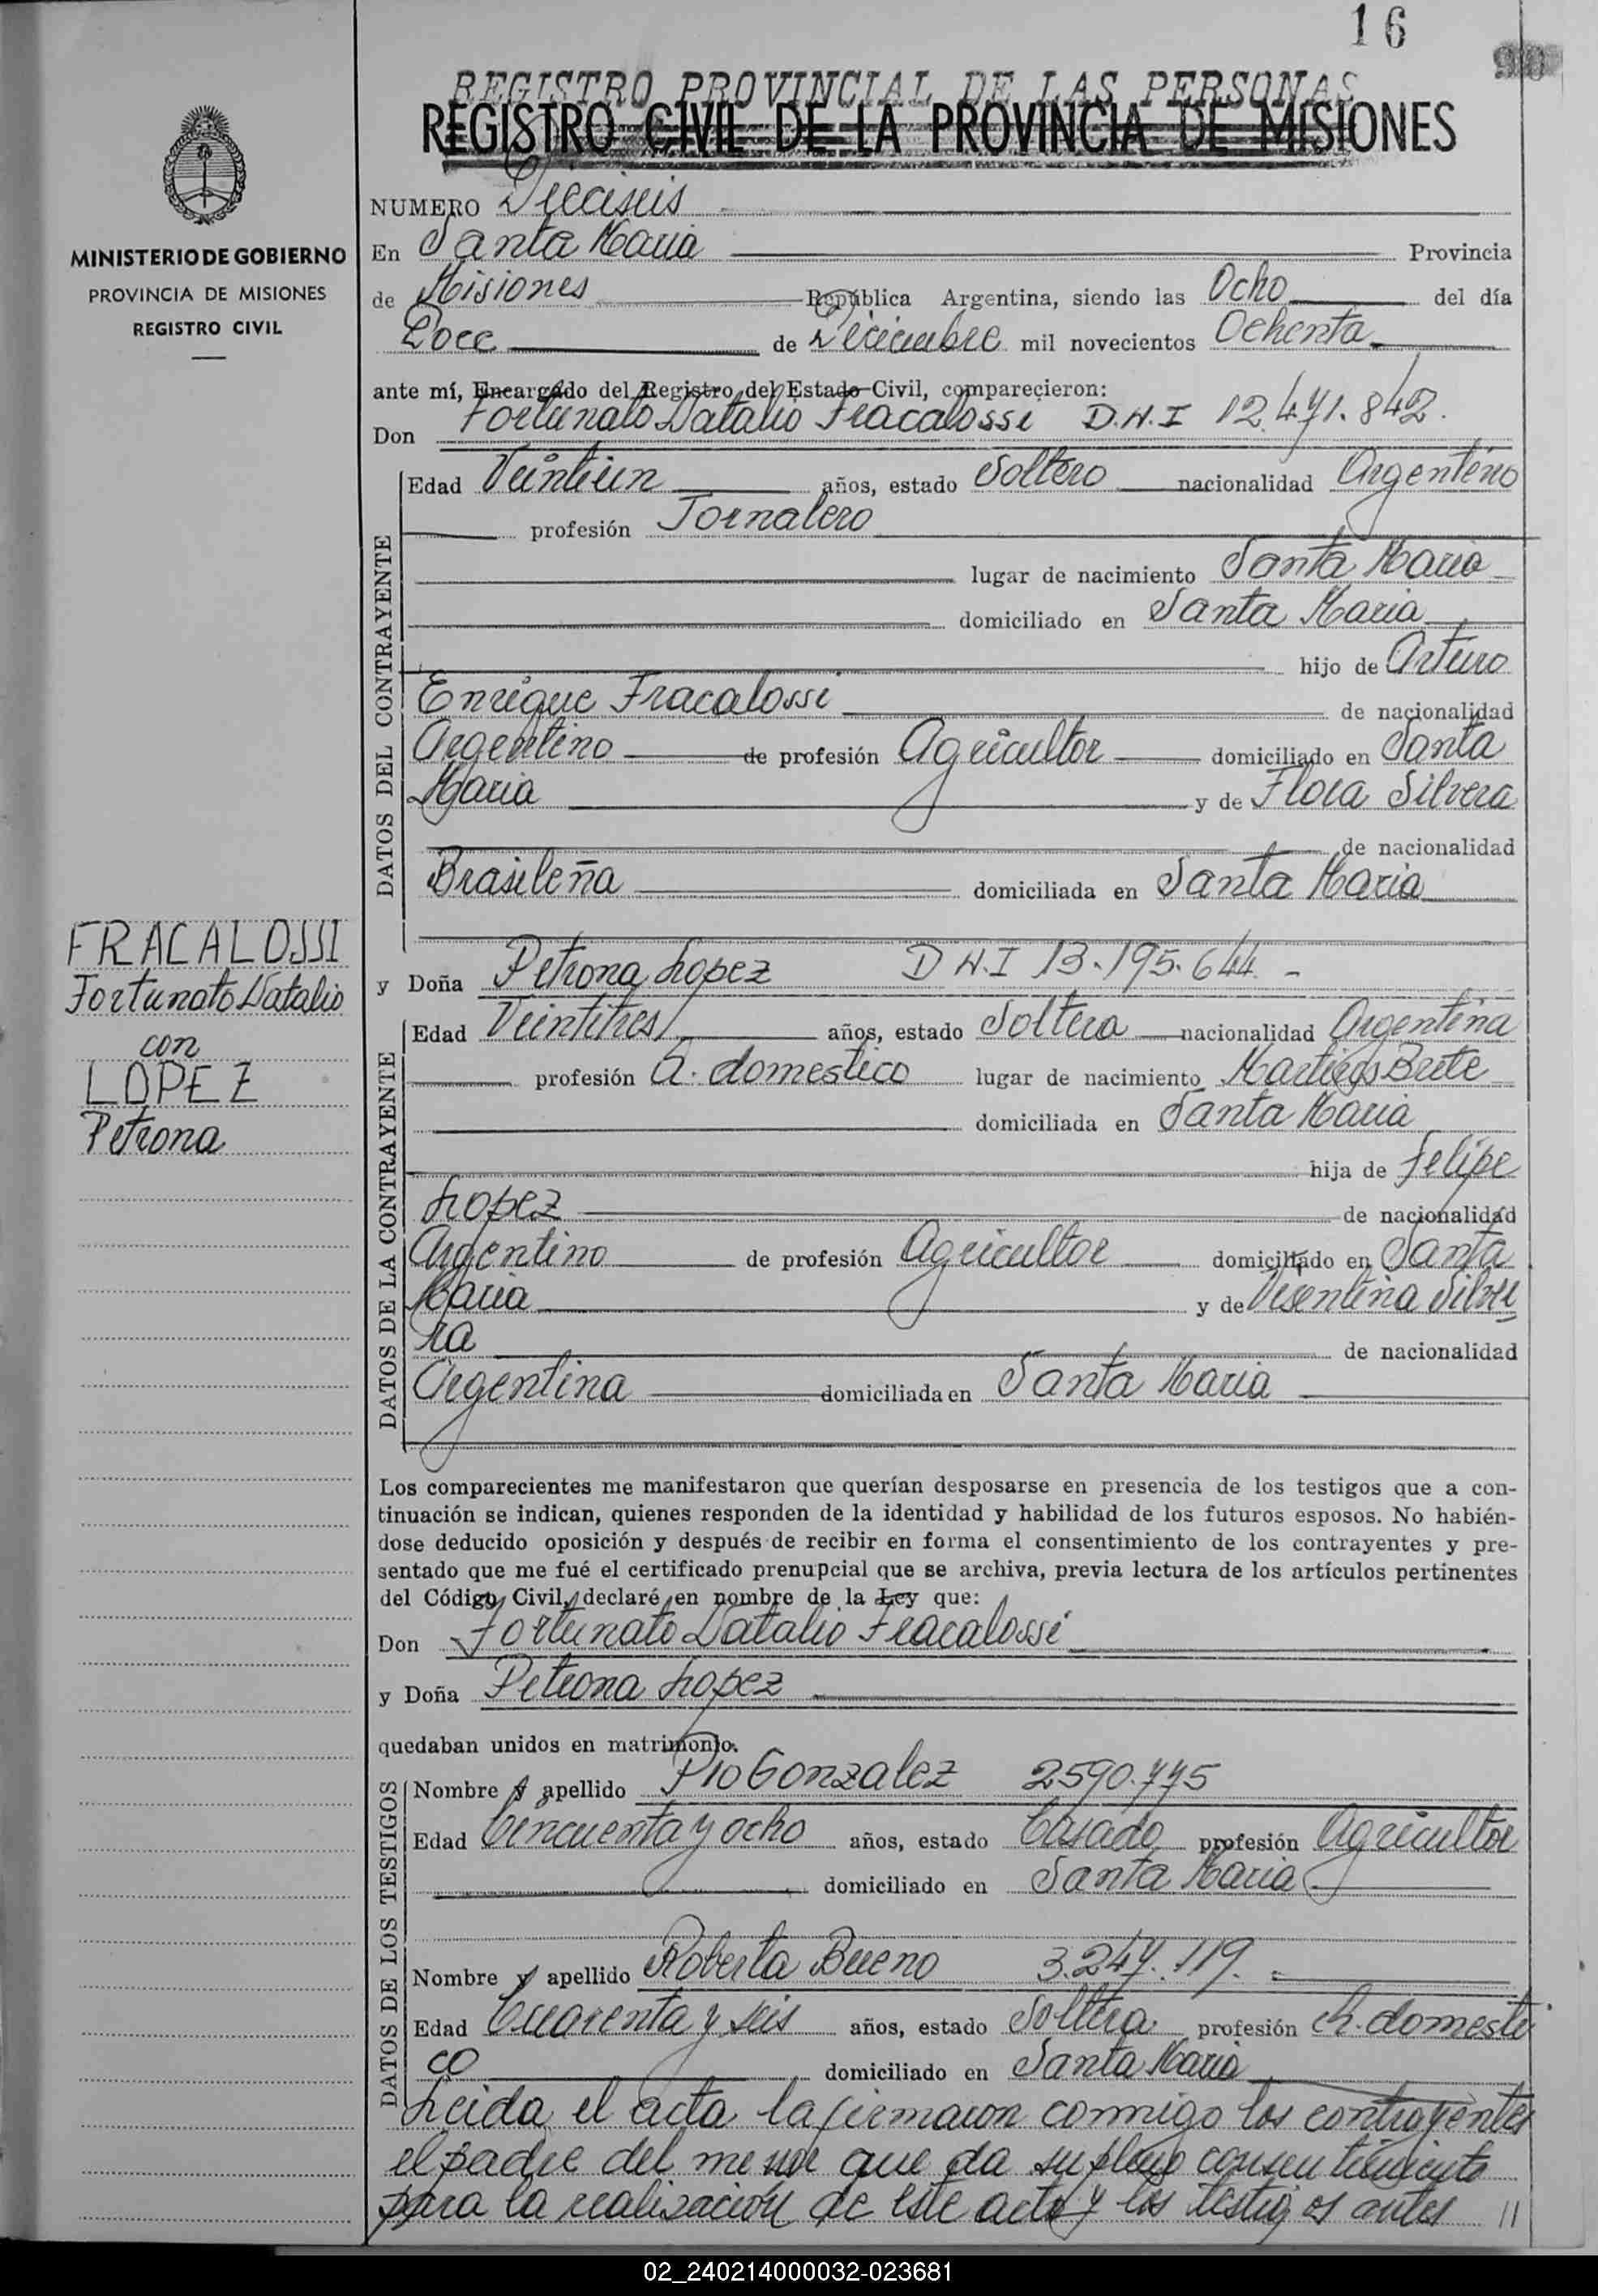 16
REGISTRO PROVINCIAL DE LAS PERSONAS
REGISTRO CIVIL DE LA PROVINCIA DE MISIONES
MINISTERIO DE GOBIERNO
PROVINCIA DE MISIONES
REGISTRO CIVIL
NUMERO Dieciseis
En Santa Maria Provincia
de Misiones República Argentina, siendo las Ocho del día
Doce de Diciembre mil novecientos Ochenta
ante mí, Encargado del Registro del Estado Civil, comparecieron:
Don Fortunato Natalio Fracalossi D.N.I 12.471.842.
DATOS DEL CONTRAYENTE
Edad Veintiun años, estado Soltero nacionalidad Argentino
profesión Jornalero
lugar de nacimiento Santa Maria
domiciliado en Santa Maria
hijo de Arturo
Enrique Fracalossi de nacionalidad
Argentino de profesión Agricultor domiciliado en Santa
Maria y de Flora Silvera
de nacionalidad
Brasileña domiciliada en Santa Maria
FRACALOSSI
Fortunato Natalio
con
LOPEZ
Petrona
y Doña Petrona Lopez D N.I 13.195.644.-
DATOS DE LA CONTRAYENTE
Edad Veintitres años, estado Soltera nacionalidad Argentina
profesión Q. domestico lugar de nacimiento Martires Brete
domiciliada en Santa Maria
hija de Felipe
Lopez de nacionalidad
Argentino de profesión Agricultor domiciliado en Santa
Maria y de Visentina Silve
ra de nacionalidad
Argentina domiciliada en Santa Maria
Los comparecientes me manifestaron que querían desposarse en presencia de los testigos que a con-
tinuación se indican, quienes responden de la identidad y habilidad de los futuros esposos. No habién-
dose deducido oposición y después de recibir en forma el consentimiento de los contrayentes y pre-
sentado que me fué el certificado prenupcial que se archiva, previa lectura de los artículos pertinentes
del Código Civil, declaré en nombre de la Ley que:
Don Fortunato Natalio Fracalossi
y Doña Petrona Lopez
quedaban unidos en matrimonio.
DATOS DE LOS TESTIGOS
Nombre y apellido Pio Gonzalez 2590.775
Edad Cincuenta y ocho años, estado Casado profesión Agricultor
domiciliado en Santa Maria
Nombre y apellido Roberta Bueno 3.247.119.
Edad Cuarenta y seis años, estado Soltera profesión Q. domesti
co domiciliado en Santa Maria
Leida el acta la firmaron conmigo los contrayentes
el padre del menor que da su pleno consentimiento
para la realización de este acto y los testigos antes //
02_240214000032-023681